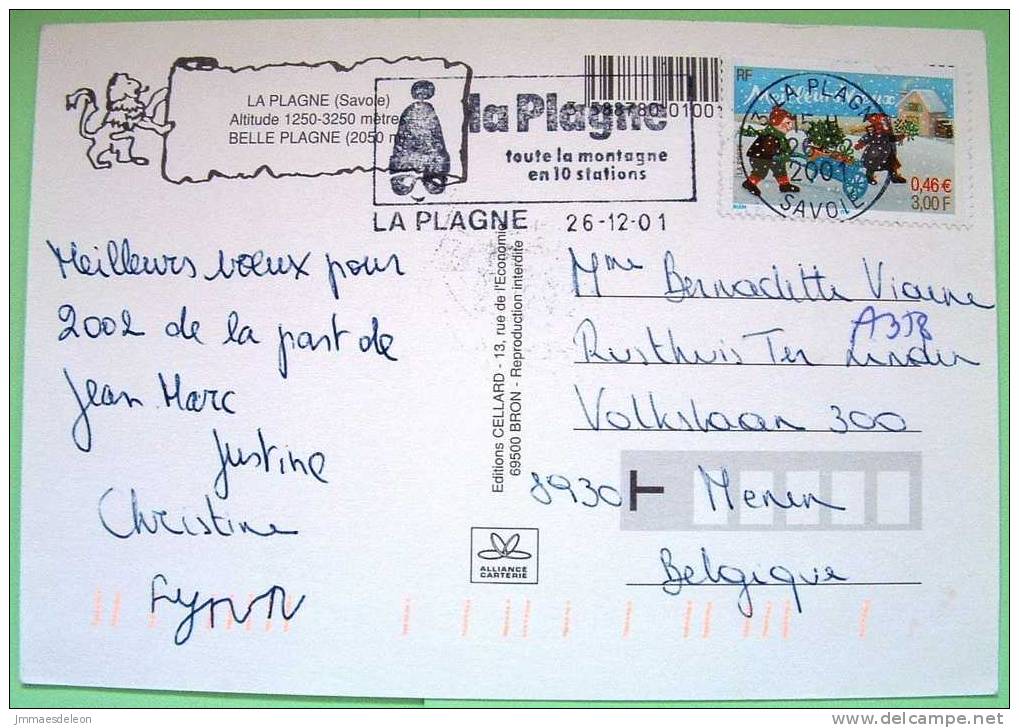 LA PLAGNE (Savoie)
Altitude 1250-3250 mètres
BELLE PLAGNE (2050 m
la Plagne
toute la montagne
en 10 stations
LA PLAGNE 26-12-01
588780 0100
RF
Meilleurs vœux
LA PLAGNE
15 H
26
2001
SAVOIE
0,46 €
3,00 F
Meilleurs vœux pour
2002 de la part de
Jean Marc
Justine
Christine
Editions CELLARD - 13, rue de l'Economie
69500 BRON - Reproduction interdite
ALLIANCE
CARTERIE
Mme Bernaditte Viaene
Rusthuis Ter Linden
Volkslaan 300
8930 Menen
Belgique
jmmaesdeleon
delcampe.net